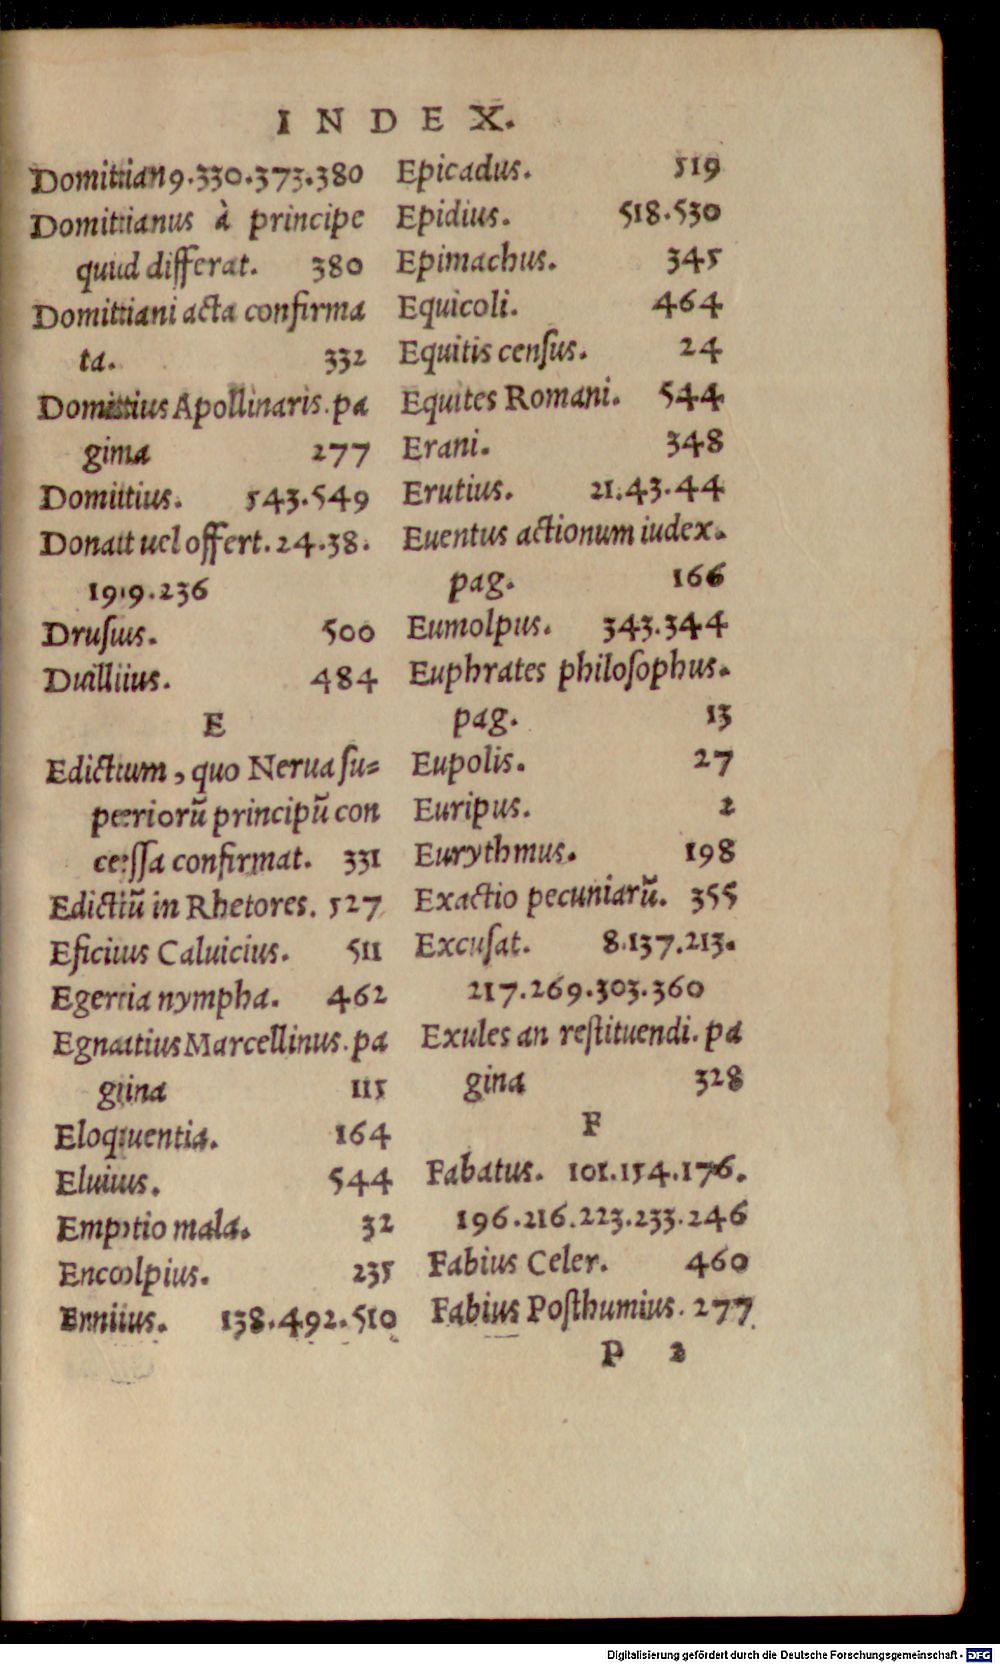 INDEX.
Domitian9.330.373.380
Domitianus à principe
quid differat. 380
Domitiani acta confirma
ta. 332
Domitius Apollinaris.pa
gina 277
Domitius. 543.549
Donat uel offert.24.38.
199.236
Drusus. 500
Duillius. 484
E
Edictum, quo Nerua ſu=
periorũ principũ con
ceſſa confirmat. 331
Edictũ in Rhetores. 527
Eficius Caluicius. 511
Egeria nympha. 462
Egnatius Marcellinus.pa
gina 115
Eloquentia. 164
Eluius. 544
Emptio mala. 32
Encolpius. 235
Ennius. 138.492.510
Epicadus. 519
Epidius. 518.530
Epimachus. 345
Equicoli. 464
Equitis cenſus. 24
Equites Romani. 544
Erani. 348
Erutius. 21.43.44
Euentus actionum iudex.
pag. 166
Eumolpus. 343.344
Euphrates philoſophus.
pag. 13
Eupolis. 27
Euripus. 2
Eurythmus. 198
Exactio pecuniarũ. 355
Excuſat. 8.137.213.
217.269.303.360
Exules an reſtituendi.pa
gina 328
F
Fabatus. 101.154.176.
196.216.223.233.246
Fabius Celer. 460
Fabius Poſthumius. 277
P 2
Digitalisierung gefördert durch die Deutsche Forschungsgemeinschaft - DFG